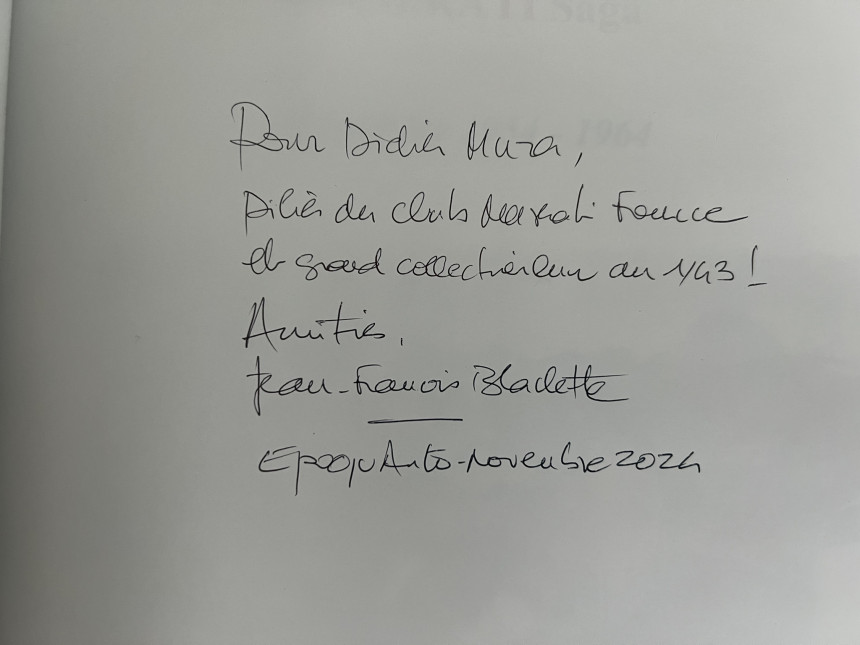 Pour Didier Muza,
pilier du club Maserati France
et grand collectionneur au 1/43 !
Amitiés,
Jean-François Blachette
EpoquAuto - novembre 2024